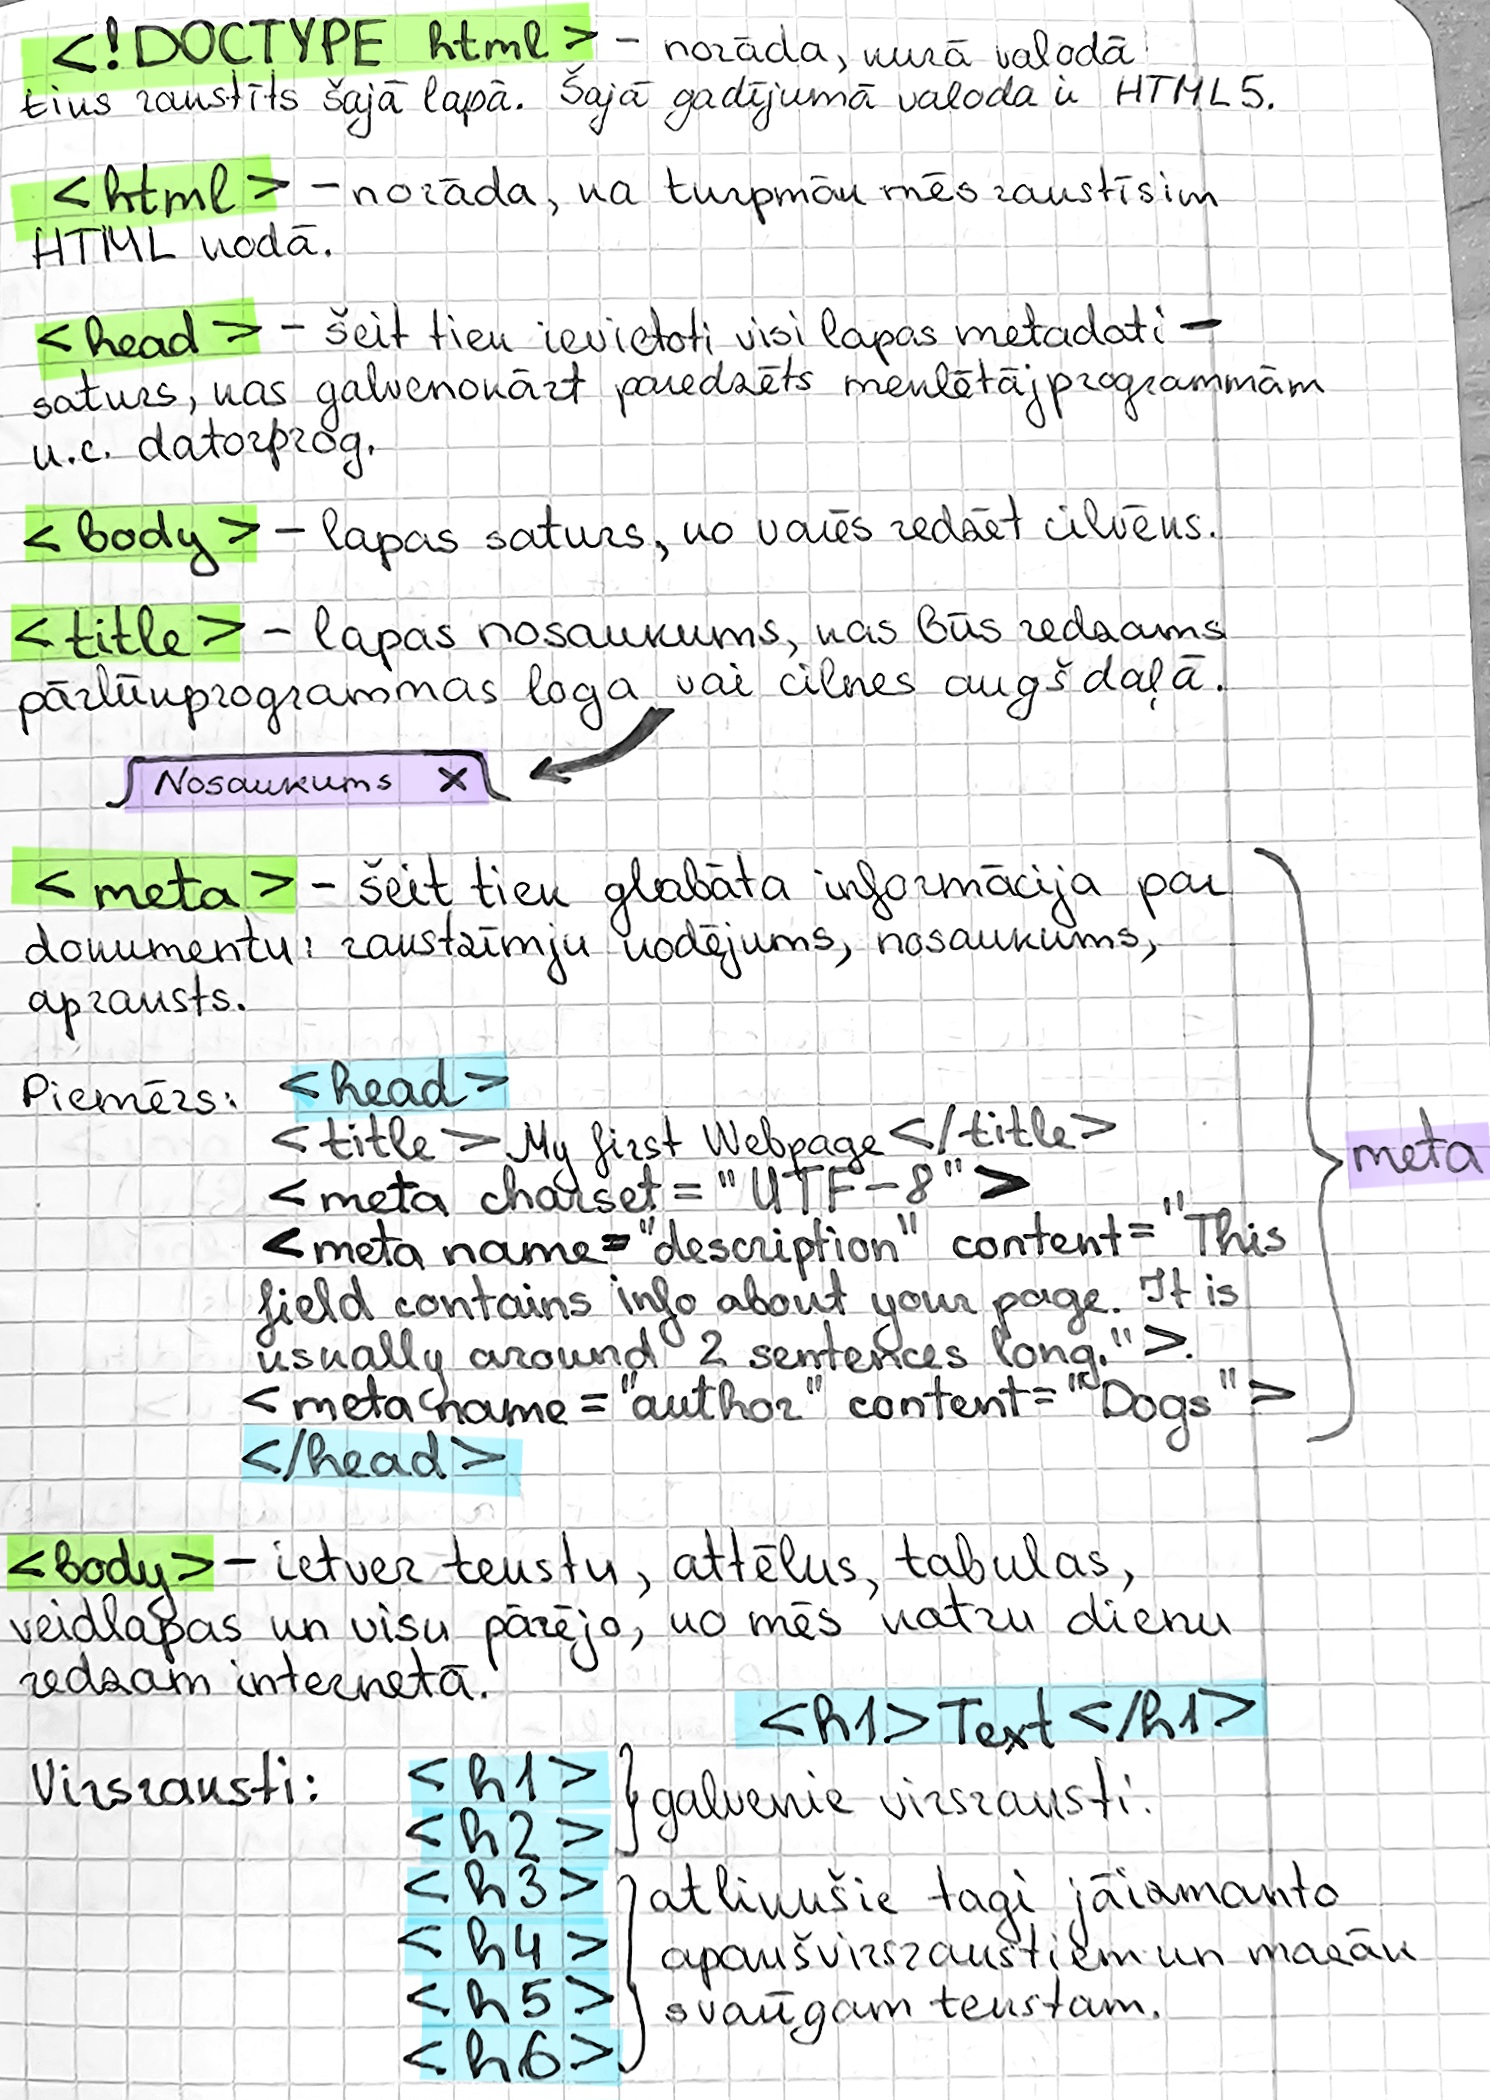 <!DOCTYPE html> - norāda, kurā valodā
tiks rakstīts šajā lapā. Šajā gadījumā valoda ir HTML5.
<html> - norāda, ka turpmāk mēs rakstīsim
HTML kodā.
<head> - šeit tiek ievietoti visi lapas metadati -
saturs, kas galvenokārt paredzēts meklētājprogrammām
u.c. datorprog.
<body> - lapas saturs, ko varēs redzēt cilvēks.
<title> - lapas nosaukums, kas būs redzams
pārlūkprogrammas loga vai cilnes augšdaļā.
Nosaukums X
<meta> - šeit tiek glabāta informācija par
dokumentu: rakstzīmju kodējums, nosaukums,
apraksts.
Piemērs: <head>
<title> My first Webpage </title>
<meta charset = "UTF-8">
<meta name="description" content="This
field contains info about your page. It is
usually around 2 sentences long.">
<meta name = "author" content="Dogs">
</head>
meta
<body> - ietver tekstu, attēlus, tabulas,
veidlapas un visu pārējo, ko mēs katru dienu
redzam internetā.
<h1> Text </h1>
Virsraksti: <h1>
<h2>
galvenie virsraksti.
<h3>
<h4>
<h5>
<h6>
atlikušie tagi jāizmanto
apakšvirsrakstiem un mazāk
svarīgam tekstam.